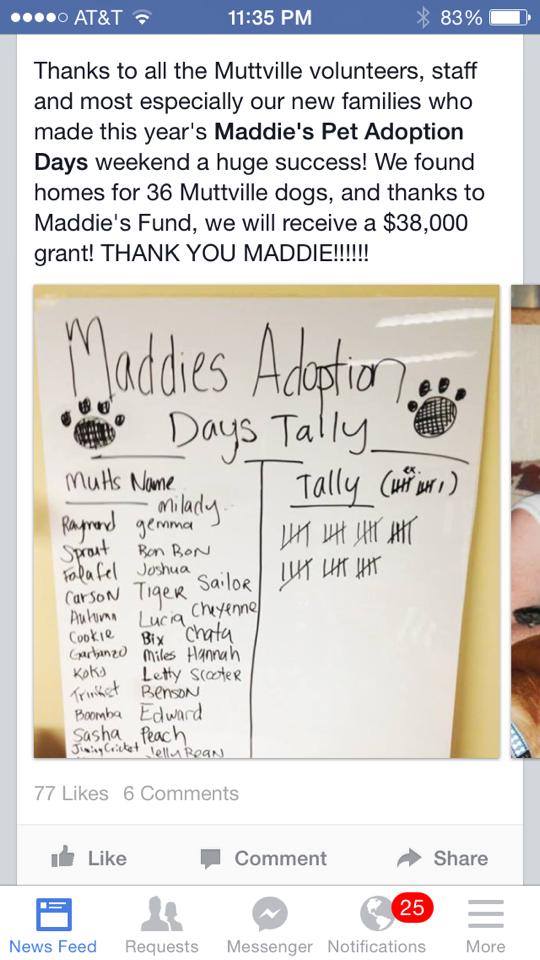 AT&T 11:35 PM 83%
Thanks to all the Muttville volunteers, staff
and most especially our new families who
made this year's Maddie's Pet Adoption
Days weekend a huge success! We found
homes for 36 Muttville dogs, and thanks to
Maddie's Fund, we will receive a $38,000
grant! THANK YOU MADDIE!!!!!!
Maddies Adoption
Days Tally
Mutts Name
Tally (ex.
milady
Raymond gemma
Sprout Bon Bon
Falafel Joshua
Carson Tiger Sailor
Autumn Lucia Cheyenne
Cookie Bix Chata
Garbanzo Miles Hannah
Koko Letty Scooter
Trinket Benson
Boomba Edward
Sasha Peach
Jiminy Cricket Jelly Bean
77 Likes 6 Comments
Like Comment Share
25
News Feed Requests Messenger Notifications More